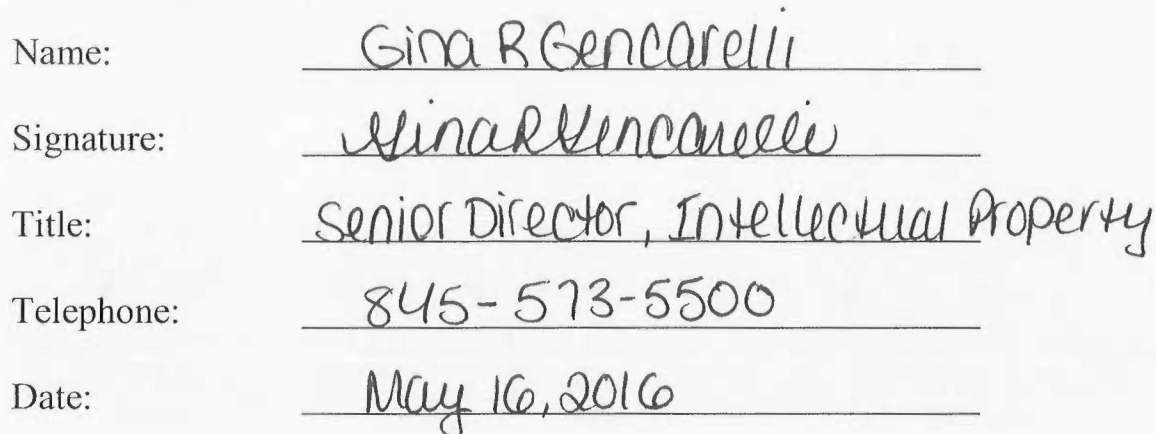 Name: Gina R Gencarelli
Signature: Gina R Gencarelli
Title: Senior Director, Intellectual Property
Telephone: 845-573-5500
Date: May 16, 2016